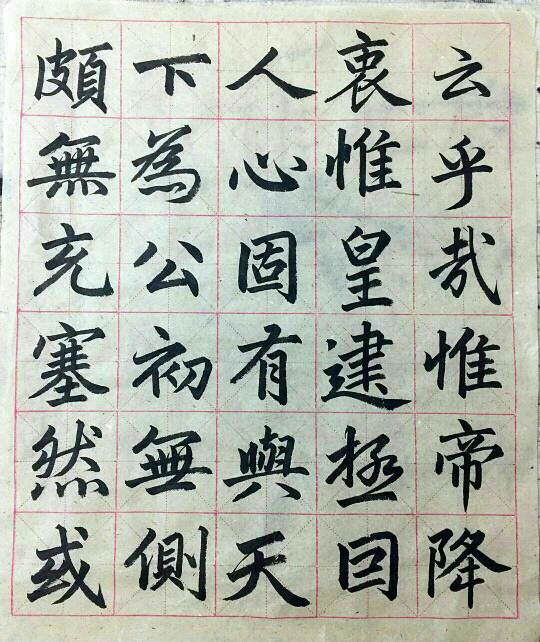 云乎哉惟帝降
衷惟皇建極回
人心固有與天
下為公初無側
頗無充塞然或